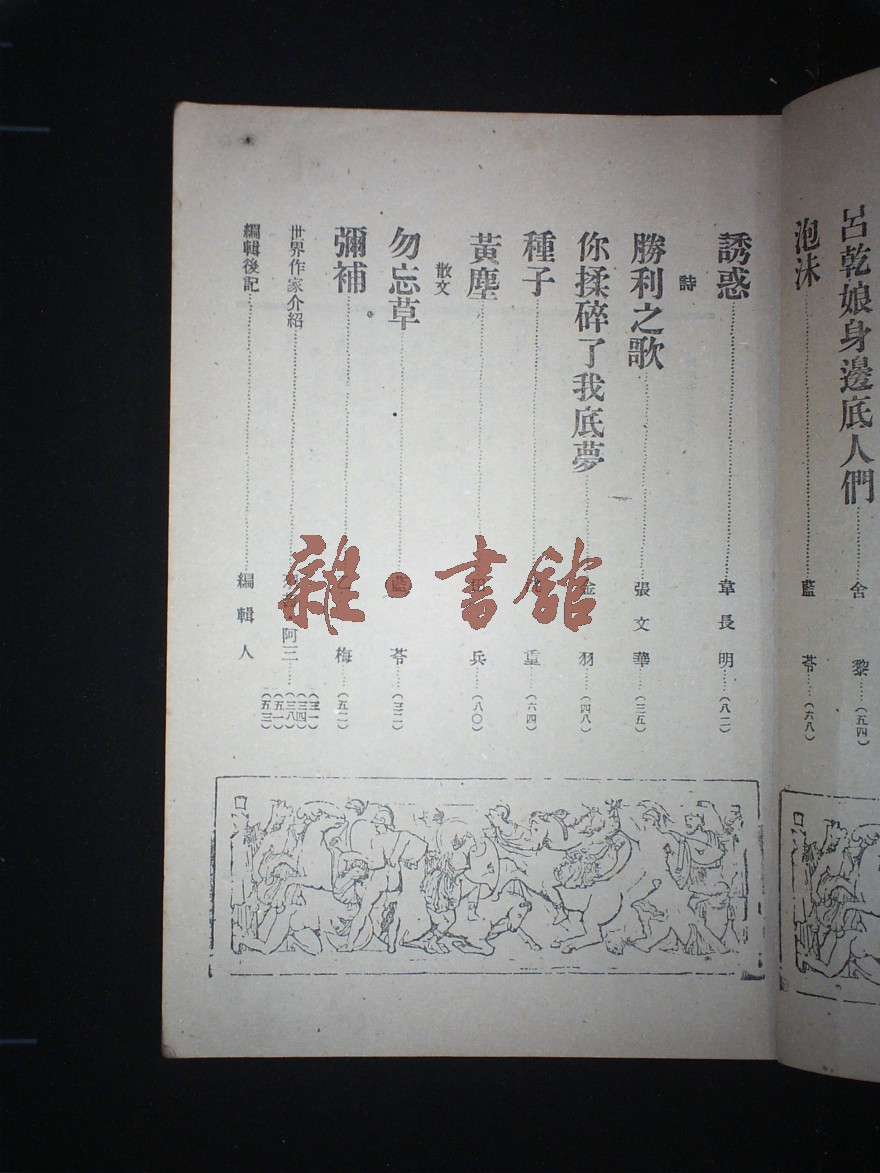 呂乾娘身邊底人們………舍黎……(五四)
泡沫………藍苓……(六八)
誘惑………韋長明……(八二)
詩
勝利之歌………張文華……(三五)
你揉碎了我底夢………金羽……(四八)
種子………重……(六四)
黃塵………兵……(八〇)
散文
勿忘草………藍苓……(三二)
彌補………乙梅……(五二)
世界作家介紹………阿三……(三一)(三四)(三八)(五一)(五三)
編輯後記………編輯人
雜·書館